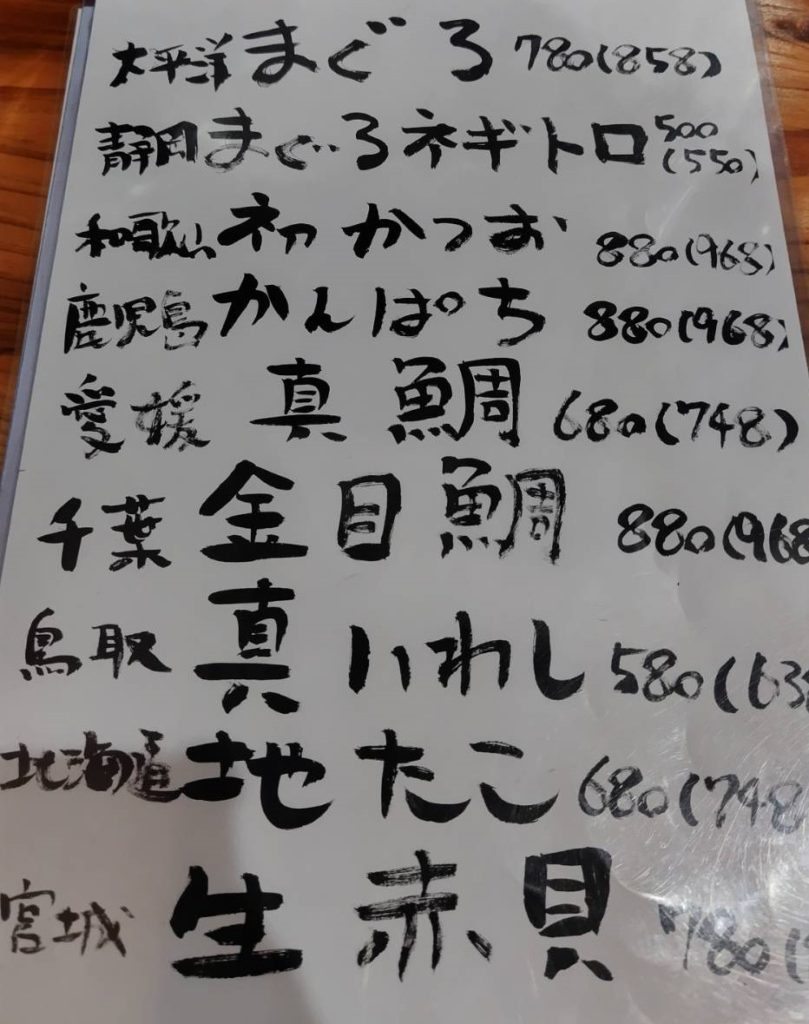 太平洋まぐろ 780(858)
静岡まぐろネギトロ 500(550)
和歌山初かつお 880(968)
鹿児島かんぱち 880(968)
愛媛 真鯛 680(748)
千葉 金目鯛 880(968
鳥取 真いわし 580(638
北海道 地たこ 680(748
宮城 生赤貝 780(